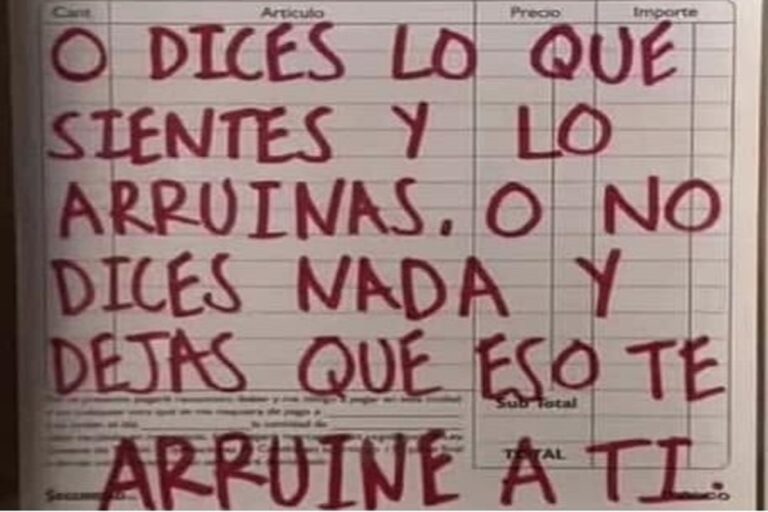 Cant. Artículo Precio Importe
O DICES LO QUE
SIENTES Y LO
ARRUINAS. O NO
DICES NADA Y
DEJAS QUE ESO TE
Sub Total
TOTAL
ARRUINE A TI.